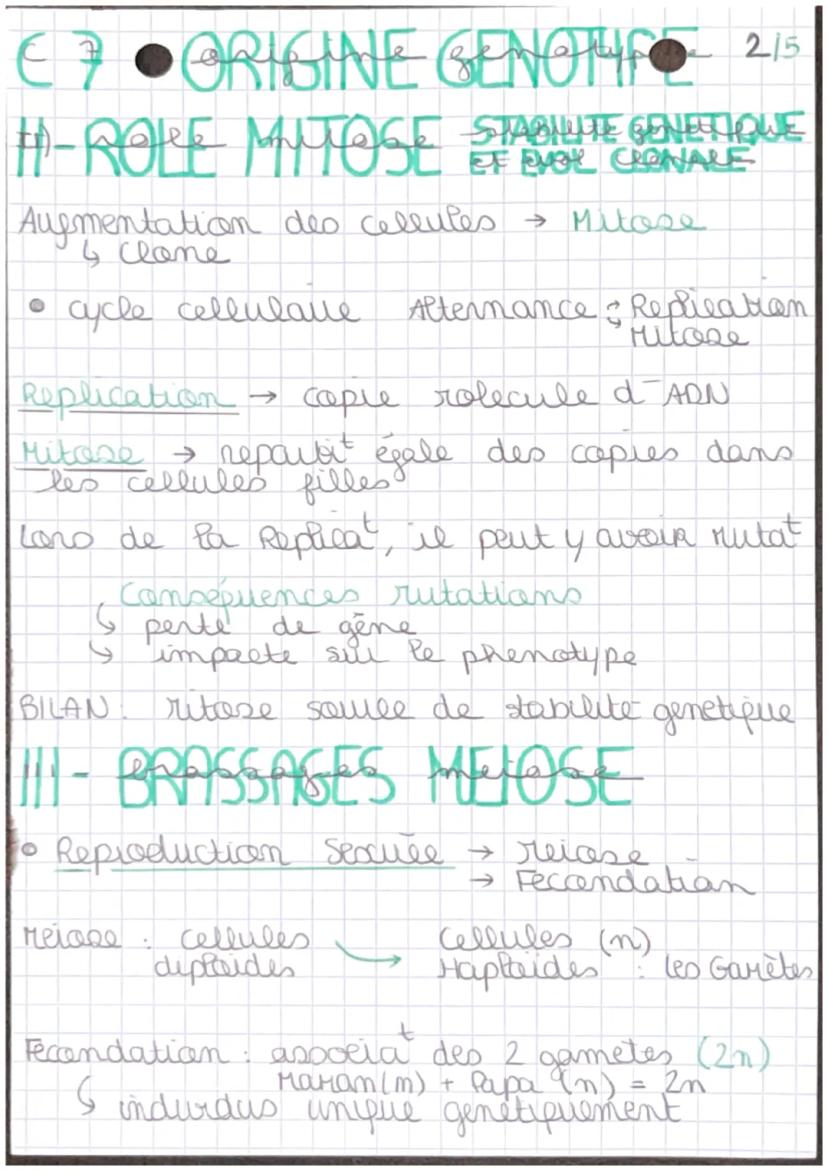 C7 ORIGINE GENOTYPE 2/5
II - ROLE MITOSE STABILITE GENETIQUE
ET EVOL CLONALE
Augmentation des cellules → Mitose
↳ Clone
• cycle cellulaire Alternance : Replication
Mitose
Replication → copie molecule d'ADN
Mitose → repartit° égale des copies dans
les cellules filles
Lors de la Replicat°, il peut y avoir mutat°
Conséquences mutations
↳ perte de gène
↳ impacte sur le phenotype
BILAN : mitose source de stabilité genetique
III - BRASSAGES MEIOSE
• Reproduction Sexuée → meiose
→ Fecondation
Meiose : cellules → Cellules (n)
diploides Haploides : les Gamètes
Fecondation : associat° des 2 gametes (2n)
Maman (n) + Papa (n) = 2n
↳ individus unique genetiquement